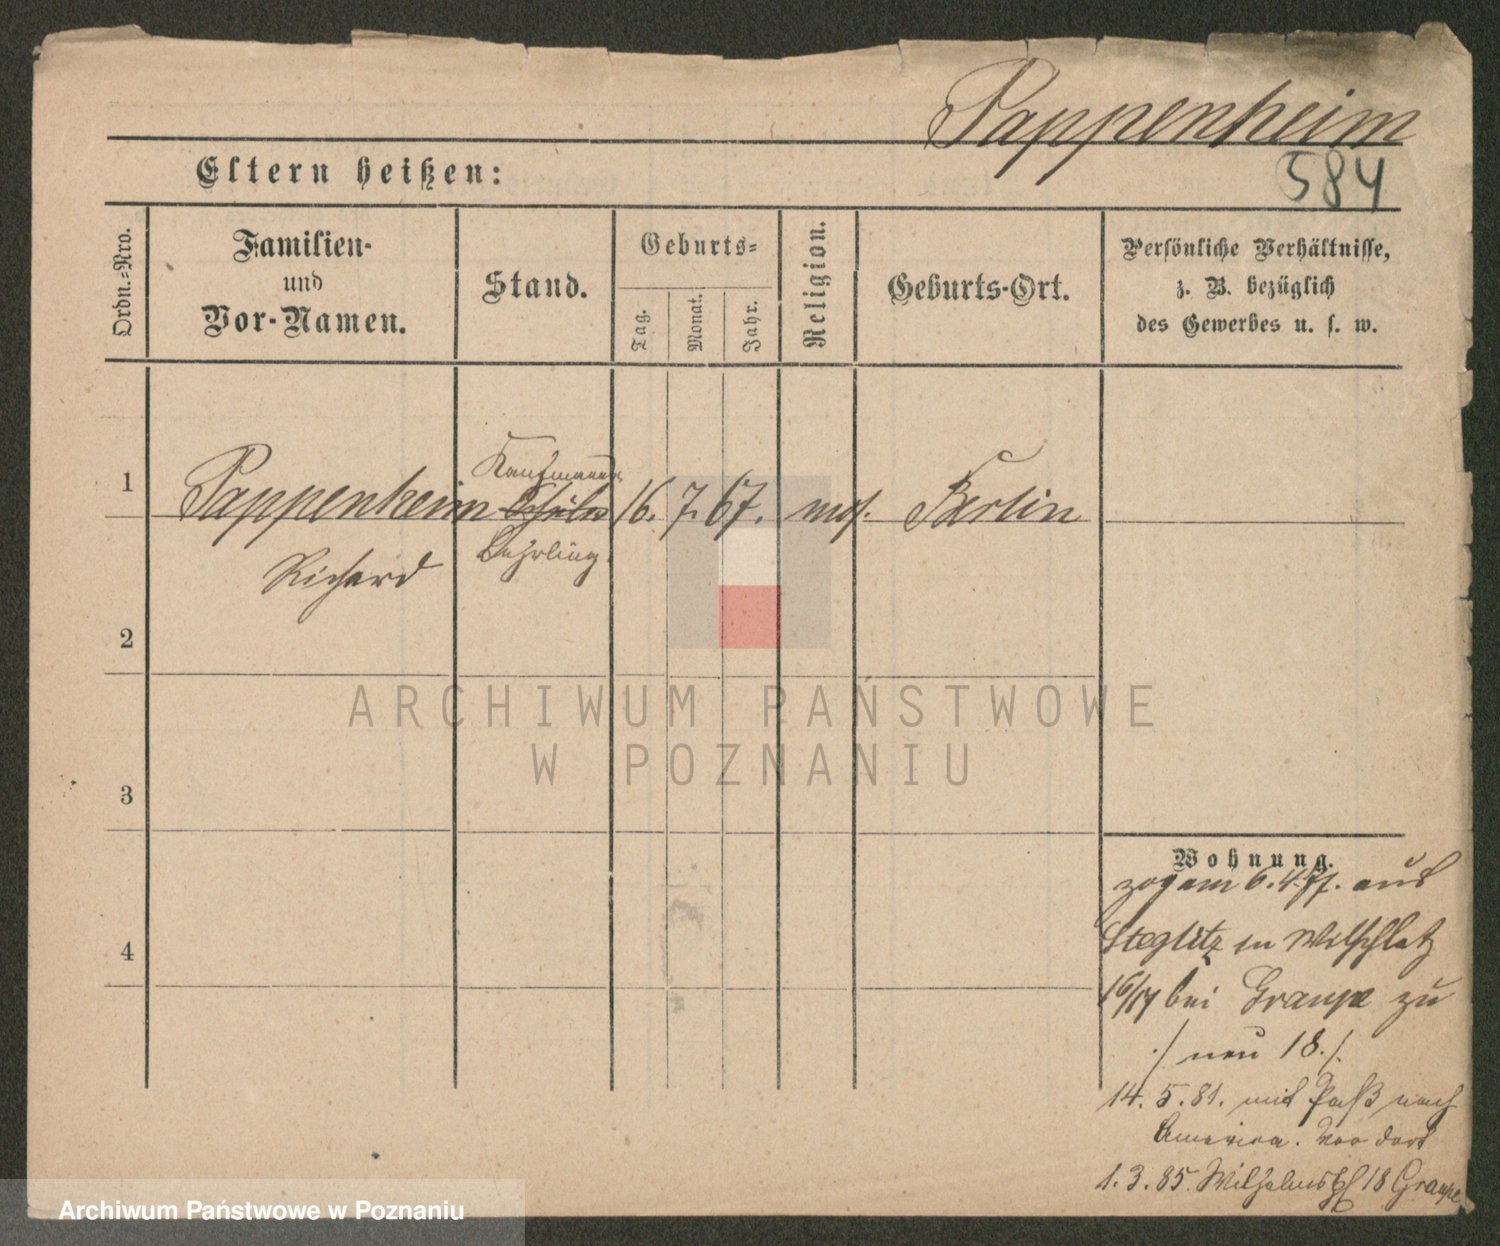 Pappenheim
584
Eltern heißen:
Ordn.-Nro.
Familien-
und
Vor-Namen.
Stand.
Geburts-
Tag.
Monat.
Jahr.
Religion.
Geburts-Ort.
Persönliche Verhältnisse,
z. B. bezüglich
des Gewerbes u. s. w.
Kaufmanns
1 Pappenheim Schüler 16. 7. 67. mos. Berlin
Lehrling.
Richard
2
3
4
Wohnung.
zog am 6.4.77. aus
Steglitz in
16/17 bei Graupe zu
./ neu 18./.
14. 5. 81. mit Paß nach
Amerika. von dort
1. 3. 85. Wilhelmspl 18 Graupe
ARCHIWUM PAŃSTWOWE
W POZNANIU
Archiwum Państwowe w Poznaniu